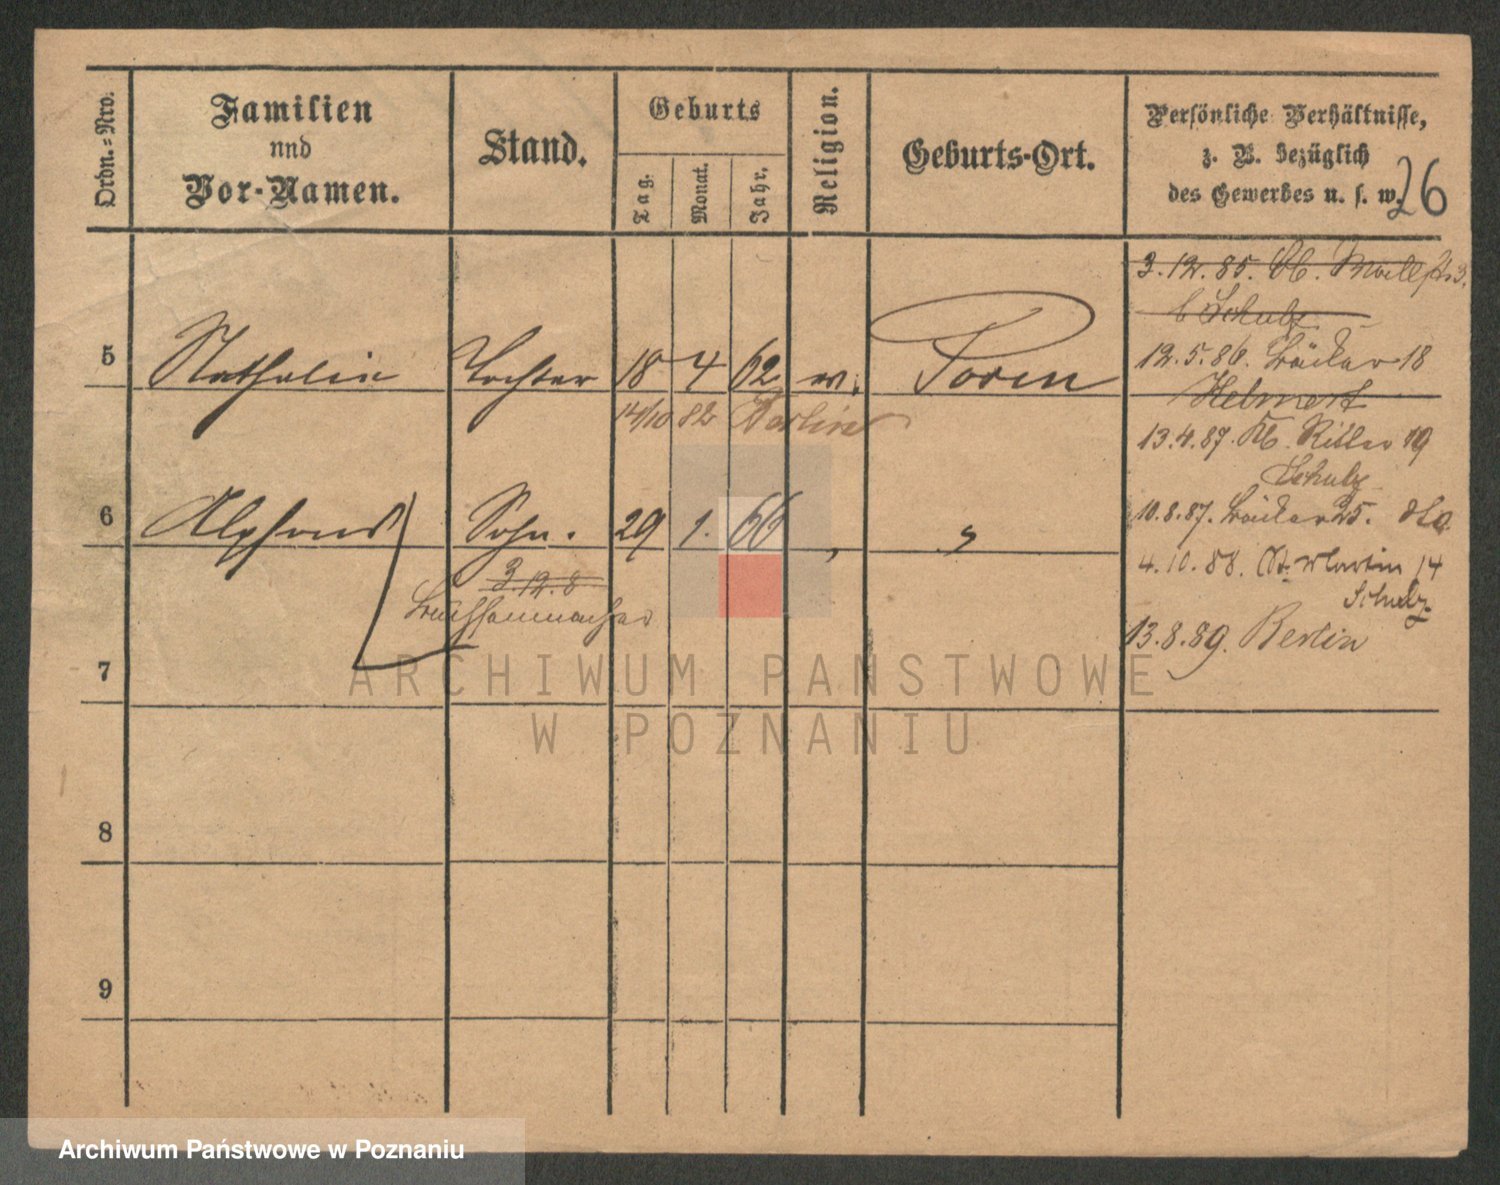 Ordn.=Nro.
Familien
und
Vor-Namen.
Stand.
Geburts
Tag.
Monat.
Jahr.
Religion.
Geburts-Ort.
Persönliche Verhältnisse,
z. B. bezüglich
des Gewerbes u. s. w.
26
5
Nathalie
Tochter
18
4
62
Posen
14/10 82 Berlin
6
Alphons
Sohn.
29
1.
66
"
"
3.12.8
7
8
9
3.12.85. Kl.
b Schulz
12.5.86. Bäcker 18
Helmert
13.4.87. Kl. Ritter 19
Schulz
10.8.87. Bäcker 25.
4.10.88. St. Martin 14
Schulz
13.8.89. Berlin
ARCHIWUM PAŃSTWOWE
W POZNANIU
Archiwum Państwowe w Poznaniu